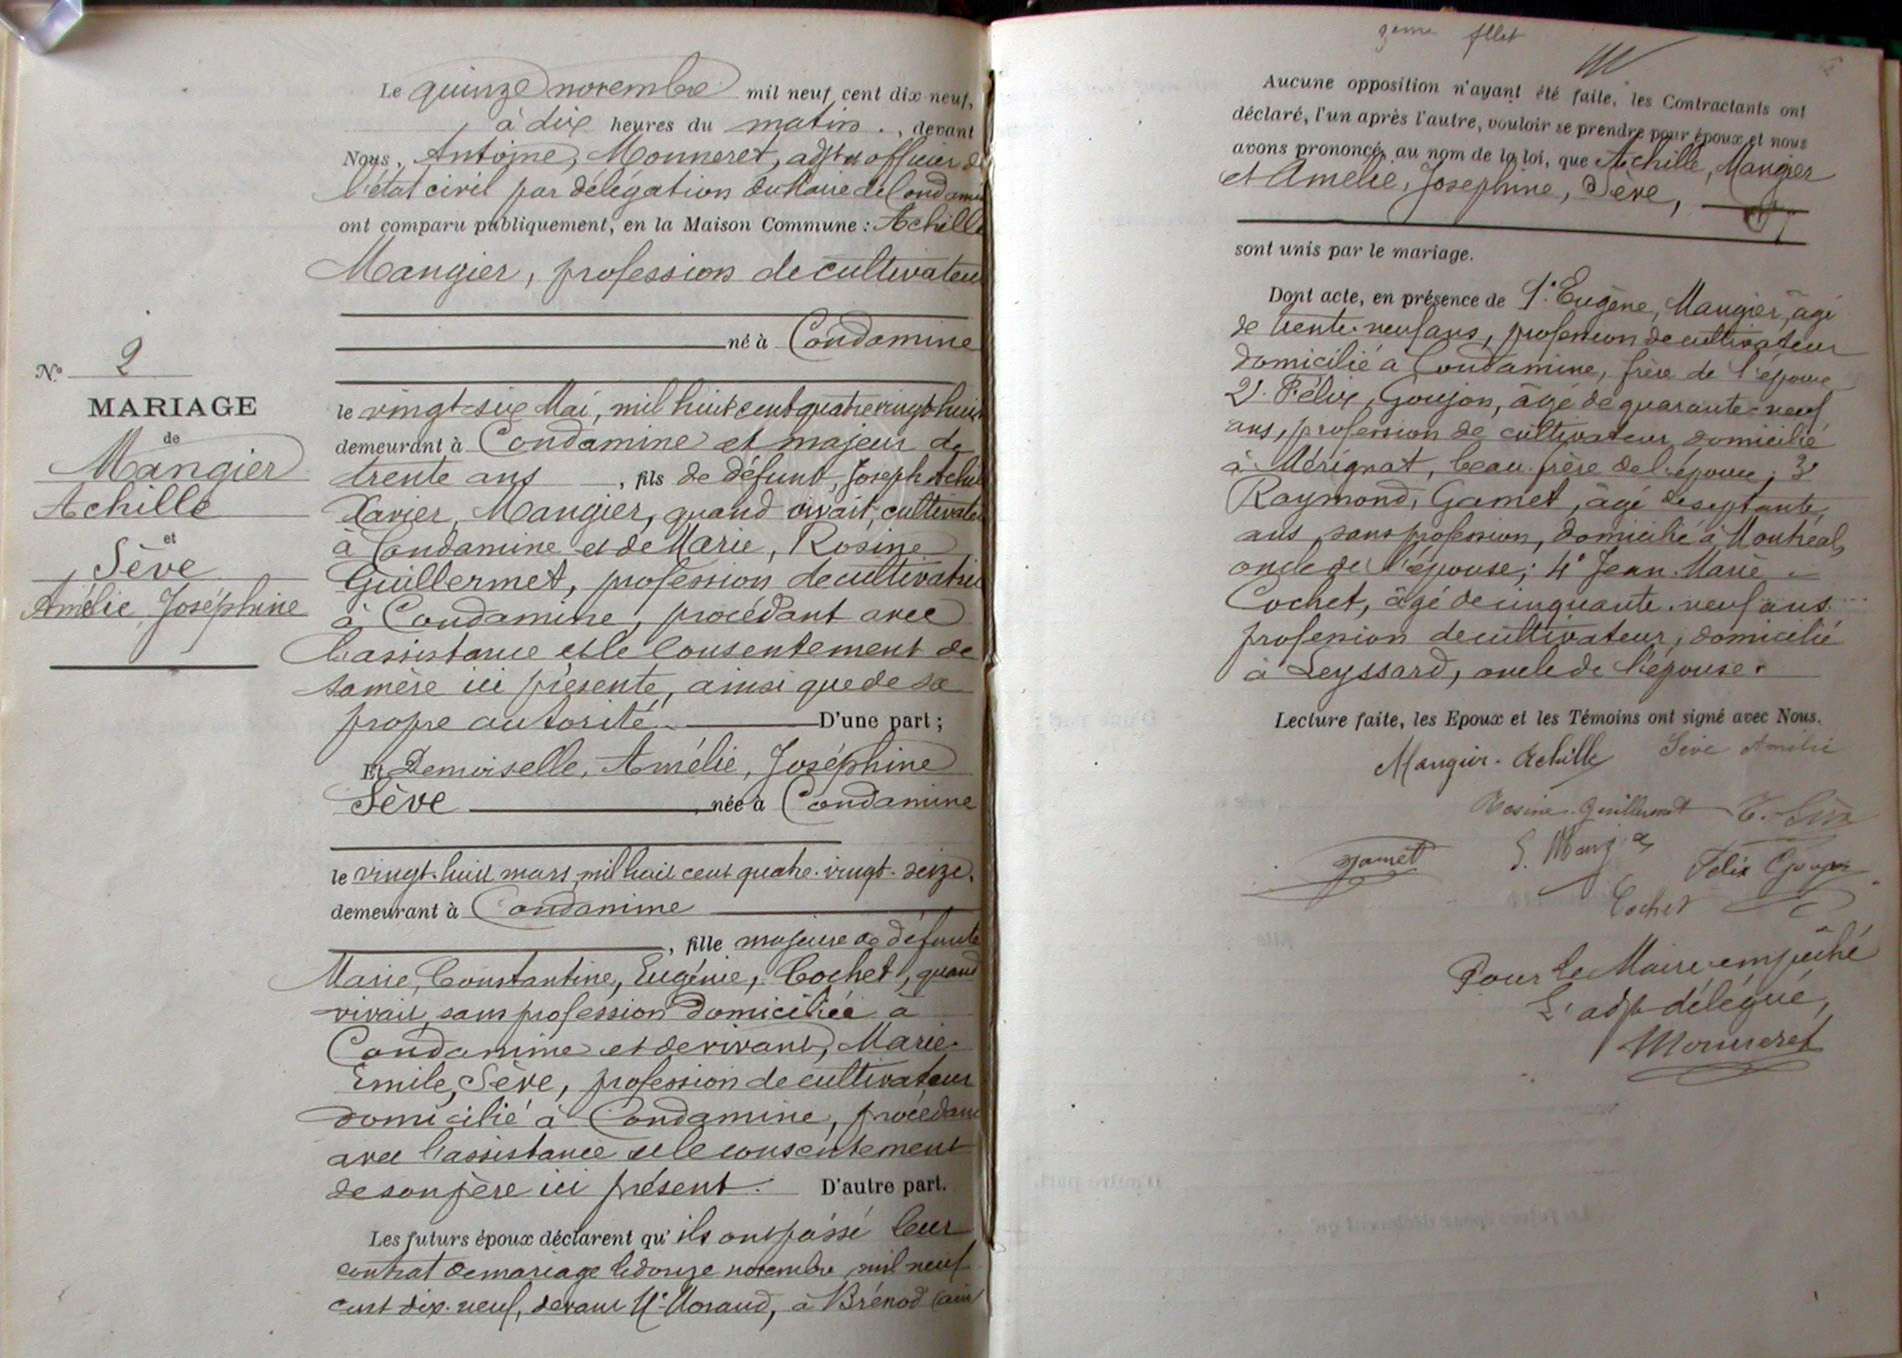 Le quinze novembre mil neuf cent dix-neuf,
à dix heures du matin, devant
Nous, Antoine, Monneret, adjt officier de
l'état civil par délégation du Maire de Condamine
ont comparu publiquement, en la Maison Commune : Achille
Mangier, profession de cultivateur
né à Condamine
le vingt-six Mai, mil huit cent quatre vingt huit
demeurant à Condamine et majeur de
trente ans, fils de défunt, Joseph Achille
Xavier, Mangier, quand vivait, cultivateur
à Condamine et de Marie, Rosine
Guillermet, profession de cultivatrice
à Condamine, procédant avec
l'assistance et le consentement de
sa mère ici présente, ainsi que de sa
propre autorité D'une part ;
Et Demoiselle, Amélie, Joséphine
Sève née à Condamine
le vingt-huit mars mil huit cent quatre-vingt-seize.
demeurant à Condamine
, fille majeure de défunte
Marie, Constantine, Eugénie, Cochet, quand
vivait, sans profession domiciliée à
Condamine et de vivant, Marie
Emile, Sève, profession de cultivateur
domicilié à Condamine, procédant
avec l'assistance et le consentement
de son père ici présent. D'autre part.
Les futurs époux déclarent qu'ils ont passé leur
contrat de mariage le douze novembre mil neuf
cent dix-neuf, devant Me Morand, à Brénod (ain
No 2
MARIAGE
de
Mangier
Achille
et
Sève
Amélie Joséphine
Aucune opposition n'ayant été faite, les Contractants ont
déclaré, l'un après l'autre, vouloir se prendre pour époux et nous
avons prononcé, au nom de la loi, que Achille, Mangier
et Amélie, Josephine, Sève,
sont unis par le mariage.
Dont acte, en présence de 1° Eugène, Mangier, âgé
de trente-neuf ans, profession de cultivateur
domicilié à Condamine, frère de l'époux
2° Félix, Goujon, âgé de quarante-neuf
ans, profession de cultivateur domicilié
à Mérignat, beau-frère de l'époux ; 3°
Raymond, Gamet, âgé de septante
ans, sans profession, domicilié à Montréal,
oncle de l'épouse ; 4° Jean-Marie
Cochet, âgé de cinquante-neuf ans
profession de cultivateur, domicilié
à Leyssard, oncle de l'épouse.
Lecture faite, les Epoux et les Témoins ont signé avec Nous.
Mangier Achille Sève Amélie
Rosine Guillermet
Gamet
Felix Goujon
Cochet
Pour le Maire empêché
L'adjt délégué,
Monneret